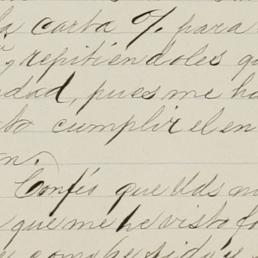 la carta % para
y repitiéndoles qu
dad, pues me ha
cumplir el en
Confío que Uds no
que me he visto fo